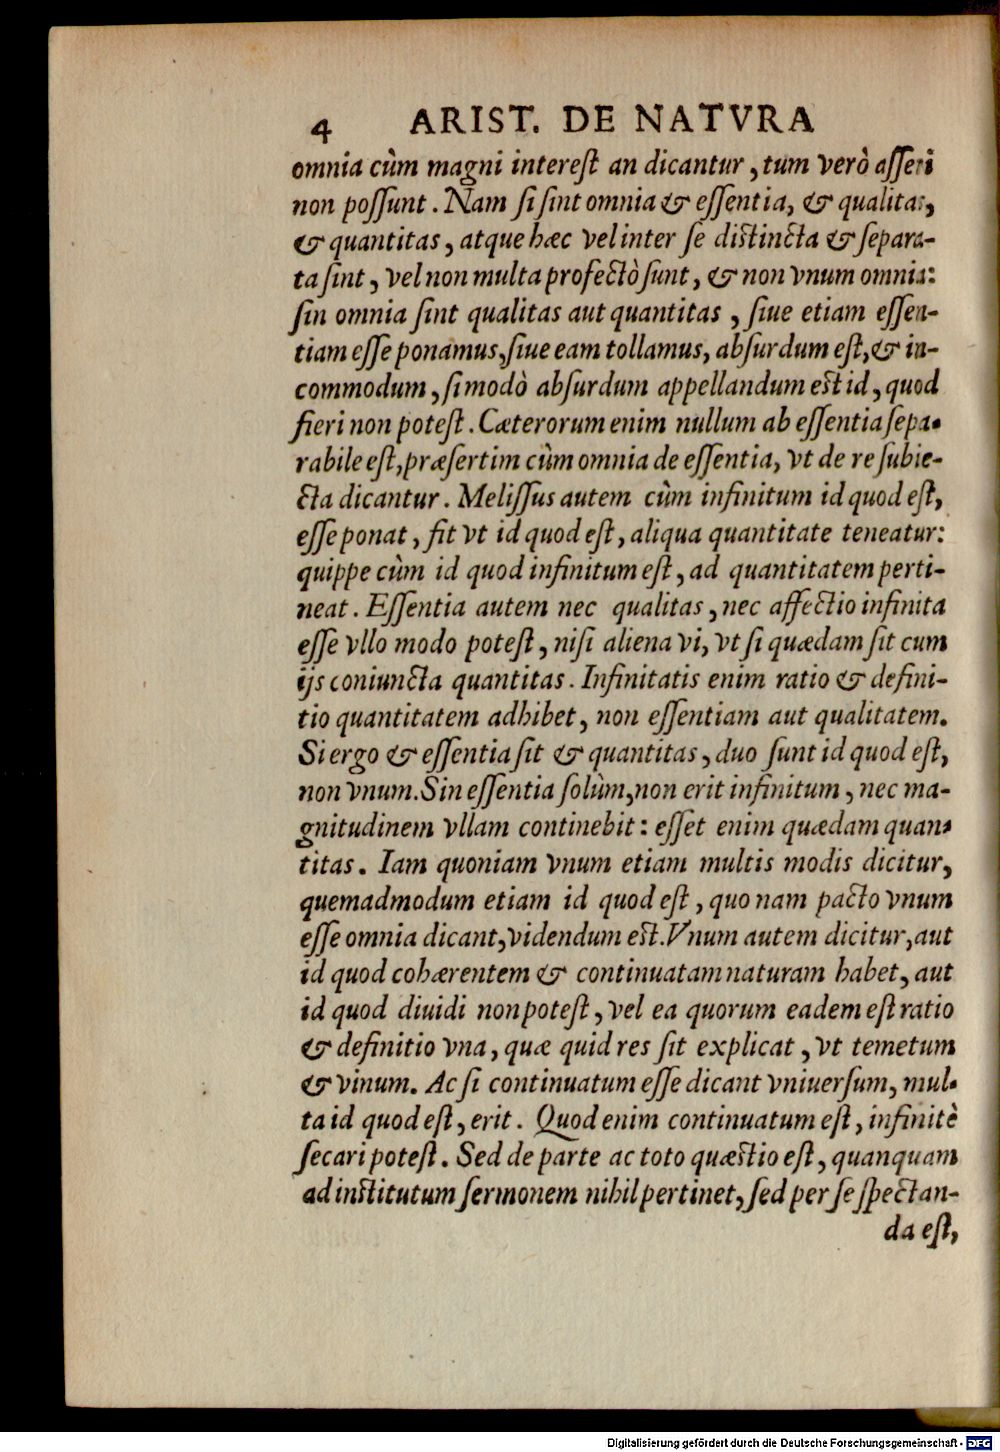 4 ARIST. DE NATVRA
omnia cùm magni intereſt an dicantur, tum verò aſſeri
non poſſunt. Nam ſi ſint omnia & eſſentia, & qualitas,
& quantitas, atque hæc vel inter ſe diſtincta & ſepara-
ta ſint, vel non multa profectò ſunt, & non vnum omnia:
ſin omnia ſint qualitas aut quantitas, ſiue etiam eſſen-
tiam eſſe ponamus, ſiue eam tollamus, abſurdum eſt, & in-
commodum, ſi modò abſurdum appellandum eſt id, quod
fieri non poteſt. Cæterorum enim nullum ab eſſentia ſepa-
rabile eſt, præſertim cùm omnia de eſſentia, vt de re ſubie-
cta dicantur. Meliſſus autem cùm infinitum id quod eſt,
eſſe ponat, fit vt id quod eſt, aliqua quantitate teneatur:
quippe cùm id quod infinitum eſt, ad quantitatem perti-
neat. Eſſentia autem nec qualitas, nec affectio infinita
eſſe vllo modo poteſt, niſi aliena vi, vt ſi quædam ſit cum
ijs coniuncta quantitas. Infinitatis enim ratio & defini-
tio quantitatem adhibet, non eſſentiam aut qualitatem.
Si ergo & eſſentia ſit & quantitas, duo ſunt id quod eſt,
non vnum. Sin eſſentia ſolùm, non erit infinitum, nec ma-
gnitudinem vllam continebit: eſſet enim quædam quan-
titas. Iam quoniam vnum etiam multis modis dicitur,
quemadmodum etiam id quod eſt, quo nam pacto vnum
eſſe omnia dicant, videndum eſt. Vnum autem dicitur, aut
id quod cohærentem & continuatam naturam habet, aut
id quod diuidi non poteſt, vel ea quorum eadem eſt ratio
& definitio vna, quæ quid res ſit explicat, vt temetum
& vinum. Ac ſi continuatum eſſe dicant vniuerſum, mul-
ta id quod eſt, erit. Quod enim continuatum eſt, infinitè
ſecari poteſt. Sed de parte ac toto quæſtio eſt, quanquam
ad inſtitutum ſermonem nihil pertinet, ſed per ſe ſpectan-
da eſt,
Digitalisierung gefördert durch die Deutsche Forschungsgemeinschaft - DFG